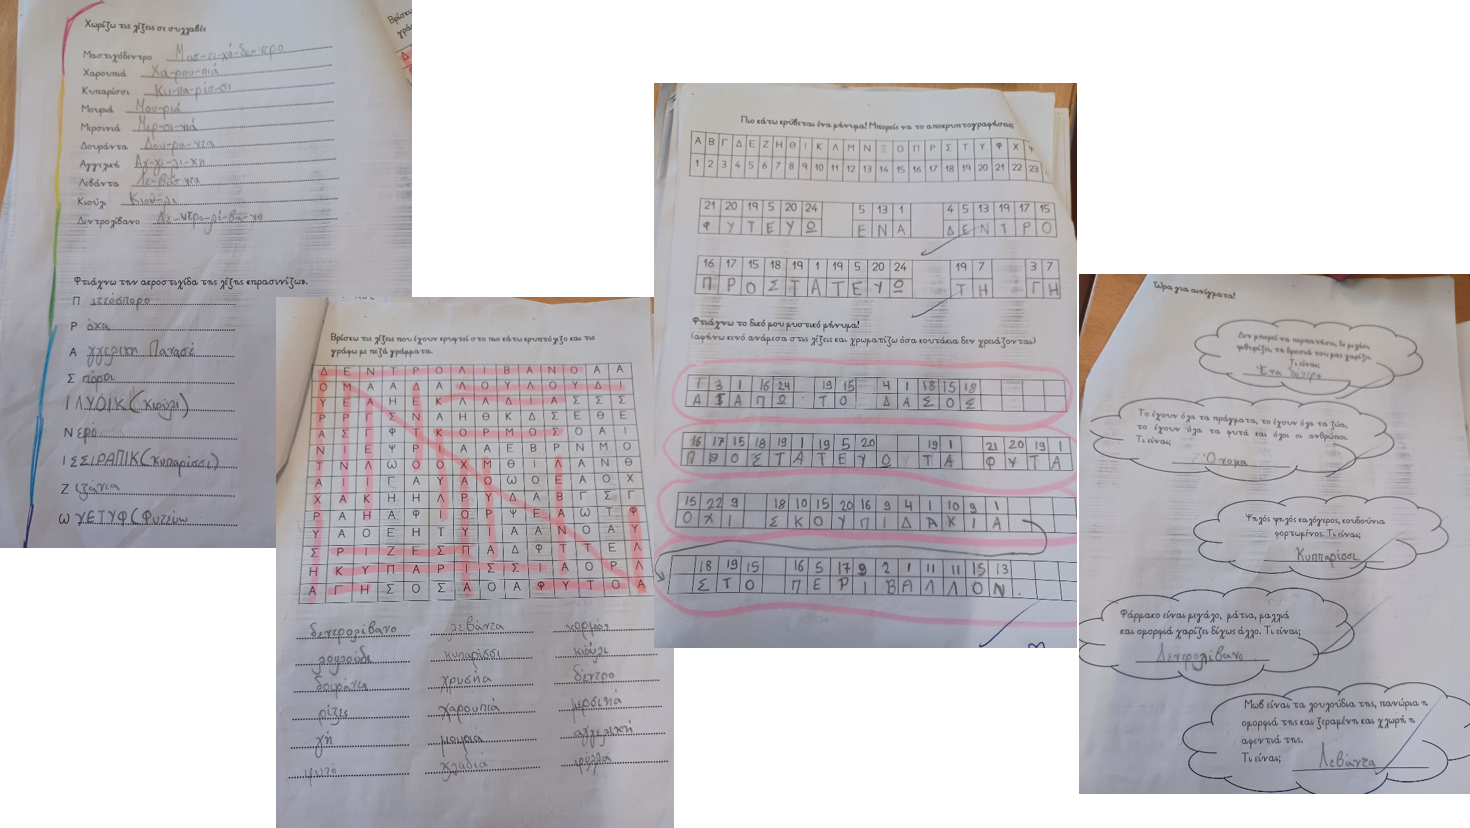 Χωρίζω τις λέξεις σε συλλαβές
Μαστιχόδεντρο Μασ-τι-χό-δε-ντρο
Χαρουπιά Χα-ρου-πιά
Κυπαρίσσι Κυ-πα-ρίσ-σι
Μουριά Μου-ριά
Μερσινιά Μερ-σι-νιά
Δουράντα Δου-ρα-ντα
Αγγελική Αγ-γε-λι-κη
Λιβάντα Λε-βα-ντα
Κιούλι Κιού-λι
Δεντρολίβανο Δε-ντρο-λί-βα-νο
Φτιάχνω την ακροστιχίδα της λέξης «πρασινίζω».
Π ιττόσπορο
Ρ όκα
Α γγερικη Πατασέ
Σ πόροι
Ι ΛΥΟΙΚ (κιούλι)
Ν ερό
Ι ΣΣΙΡΑΠΙΚ (κυπαρίσσι)
Ζ ιζάνια
Ω ΥΕΤΥΦ (Φυτεύω
Βρίσκω τις λέξεις που έχουν κρυφτεί στο πιο κάτω κρυπτόλεξο και τις
γράφω με πεζά γράμματα.
Δ Ε Ν Τ Ρ Ο Λ Ι Β Α Ν Ο Α Α
Ο Μ Α Α Δ Α Λ Ο Υ Λ Ο Υ Δ Ι
Υ Ε Α Η Ε Κ Λ Α Δ Ι Α Σ Σ Σ
Ρ Ρ Γ Σ Ν Α Η Θ Κ Δ Σ Ε Θ Ε
Α Σ Γ Φ Τ Κ Ο Ρ Μ Ο Σ Ο Α Ι
Ν Ι Ε Ψ Ρ Ι Α Α Ε Β Ρ Ν Μ Ο
Τ Ν Λ Ω Ο Ο Χ Μ Θ Ι Λ Α Ν Θ
Α Ι Ι Γ Α Υ Α Ο Ω Ο Ε Α Ο Χ
Χ Α Κ Η Η Λ Ρ Υ Δ Α Β Γ Σ Γ
Ρ Α Η Α Φ Ι Ο Ρ Ψ Ε Α Ω Τ Φ
Υ Α Ο Ε Η Τ Υ Ι Α Α Ν Ο Α Υ
Σ Ρ Ι Ζ Ε Σ Π Α Δ Φ Τ Τ Ε Λ
Η Κ Υ Π Α Ρ Ι Σ Σ Ι Α Ο Ρ Λ
Α Γ Η Σ Ο Σ Α Ο Α Φ Υ Τ Ο Α
δεντρολίβανο λεβάντα κορμός
λουλούδι κυπαρίσσι κιούλι
δουράντα χρυσήα δέντρο
ρίζες χαρουπιά μερσινιά
γή μουρια αγγελική
φυτό κλαδιά φύλλα
Πιο κάτω κρύβεται ένα μήνυμα! Μπορείς να το αποκρυπτογραφήσεις;
Α Β Γ Δ Ε Ζ Η Θ Ι Κ Λ Μ Ν Ξ Ο Π Ρ Σ Τ Υ Φ Χ Ψ
1 2 3 4 5 6 7 8 9 10 11 12 13 14 15 16 17 18 19 20 21 22 23
21 20 19 5 20 24 5 13 1 4 5 13 19 17 15
Φ Υ Τ Ε Υ Ω Ε Ν Α Δ Ε Ν Τ Ρ Ο
16 17 15 18 19 1 19 5 20 24 19 7 3 7
Π Ρ Ο Σ Τ Α Τ Ε Υ Ω Τ Η Γ Η
Φτιάχνω το δικό μου μυστικό μήνυμα!
(αφήνω κενό ανάμεσα στις λέξεις και χρωματίζω όσα κουτάκια δεν χρειάζονται)
1 3 1 16 24 19 15 4 1 18 15 18
Α Γ Α Π Ω Τ Ο Δ Α Σ Ο Σ
16 17 15 18 19 1 19 5 20 19 1 21 20 19 1
Π Ρ Ο Σ Τ Α Τ Ε Υ Ω Τ Α Φ Υ Τ Α
15 22 9 18 10 15 20 16 9 4 1 10 9 1
Ο Χ Ι Σ Κ Ο Υ Π Ι Δ Α Κ Ι Α
18 19 15 16 5 17 9 2 1 11 11 15 13
Σ Τ Ο Π Ε Ρ Ι Β Α Λ Λ Ο Ν .
Ώρα για αινίγματα!
Δεν μπορεί να περπατήσει, δε μιλάει,
ψιθυρίζει, τη δροσιά του μας χαρίζει.
Τι είναι;
Ένα δέντρο
Το έχουν όλα τα πράγματα, το έχουν όλα τα ζώα,
το έχουν όλα τα φυτά και όλοι οι άνθρωποι.
Τι είναι;
Όνομα
Ψηλός ψηλός καλόγερος, κουδούνια
φορτωμένος. Τι είναι;
Κυππαρίσσι
Φάρμακο είναι μεγάλο, μάτια, μαλλιά
και ομορφιά χαρίζει δίχως άλλο. Τι είναι;
Δεντρολίβανο
Μωβ είναι τα λουλούδια της, πανώρια η
ομορφιά της και ξεραμένη και χλωρή η
αφεντιά της.
Τι είναι;
Λεβάντα